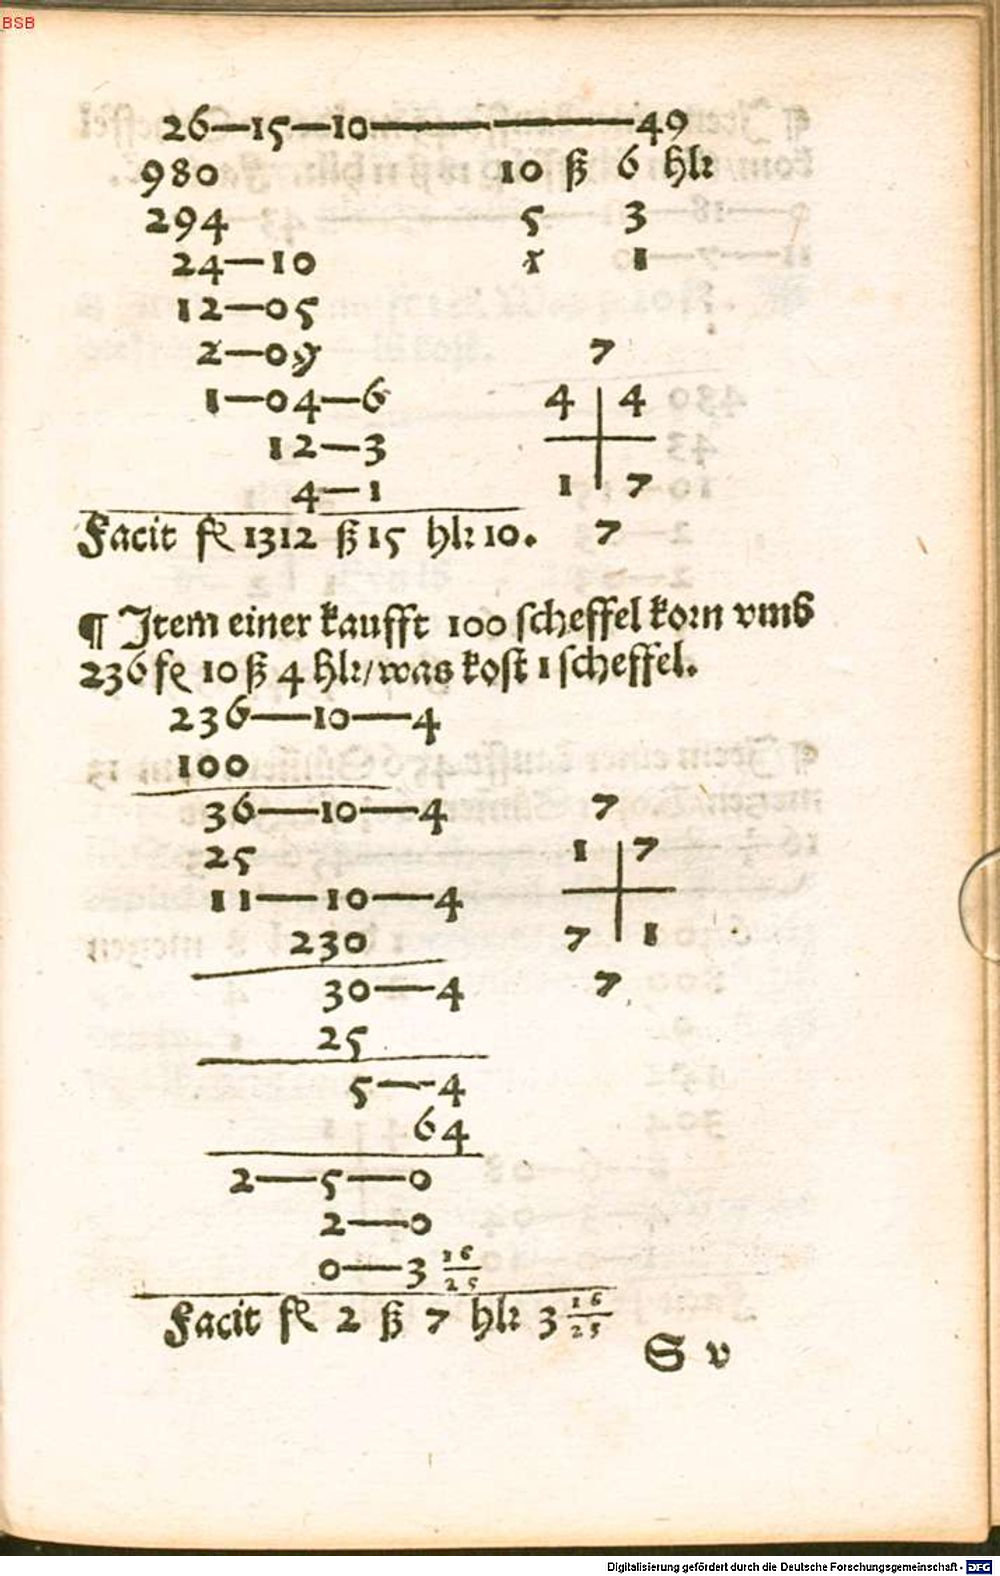 BSB
26—15—10———49
980 10 ß 6 hlr
294 5 3
24—10 1 1
12—05
2—09 7
1—04—6 4 4
12—3
4—1 1 7
Facit fl 1312 ß 15 hlr 10. 7
¶ Item einer kaufft 100 scheffel korn vmb
236 fl 10 ß 4 hlr/was kost 1 scheffel.
236—10—4
100
36—10—4 7
25 1 7
11—10—4
230 7 1
30—4 7
25
5—4
64
2—5—0
2—0
0—3 16/25
Facit fl 2 ß 7 hlr 3 16/25
S v
Digitalisierung gefördert durch die Deutsche Forschungsgemeinschaft - DFG